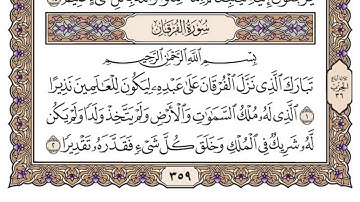 سُورَةُ الفُرْقَانِ
بِسْمِ اللَّهِ الرَّحْمَٰنِ الرَّحِيمِ
تَبَارَكَ الَّذِي نَزَّلَ الْفُرْقَانَ عَلَىٰ عَبْدِهِ لِيَكُونَ لِلْعَالَمِينَ نَذِيرًا
١ الَّذِي لَهُ مُلْكُ السَّمَاوَاتِ وَالْأَرْضِ وَلَمْ يَتَّخِذْ وَلَدًا وَلَمْ يَكُنْ
لَهُ شَرِيكٌ فِي الْمُلْكِ وَخَلَقَ كُلَّ شَيْءٍ فَقَدَّرَهُ تَقْدِيرًا ٢
٣٥٩